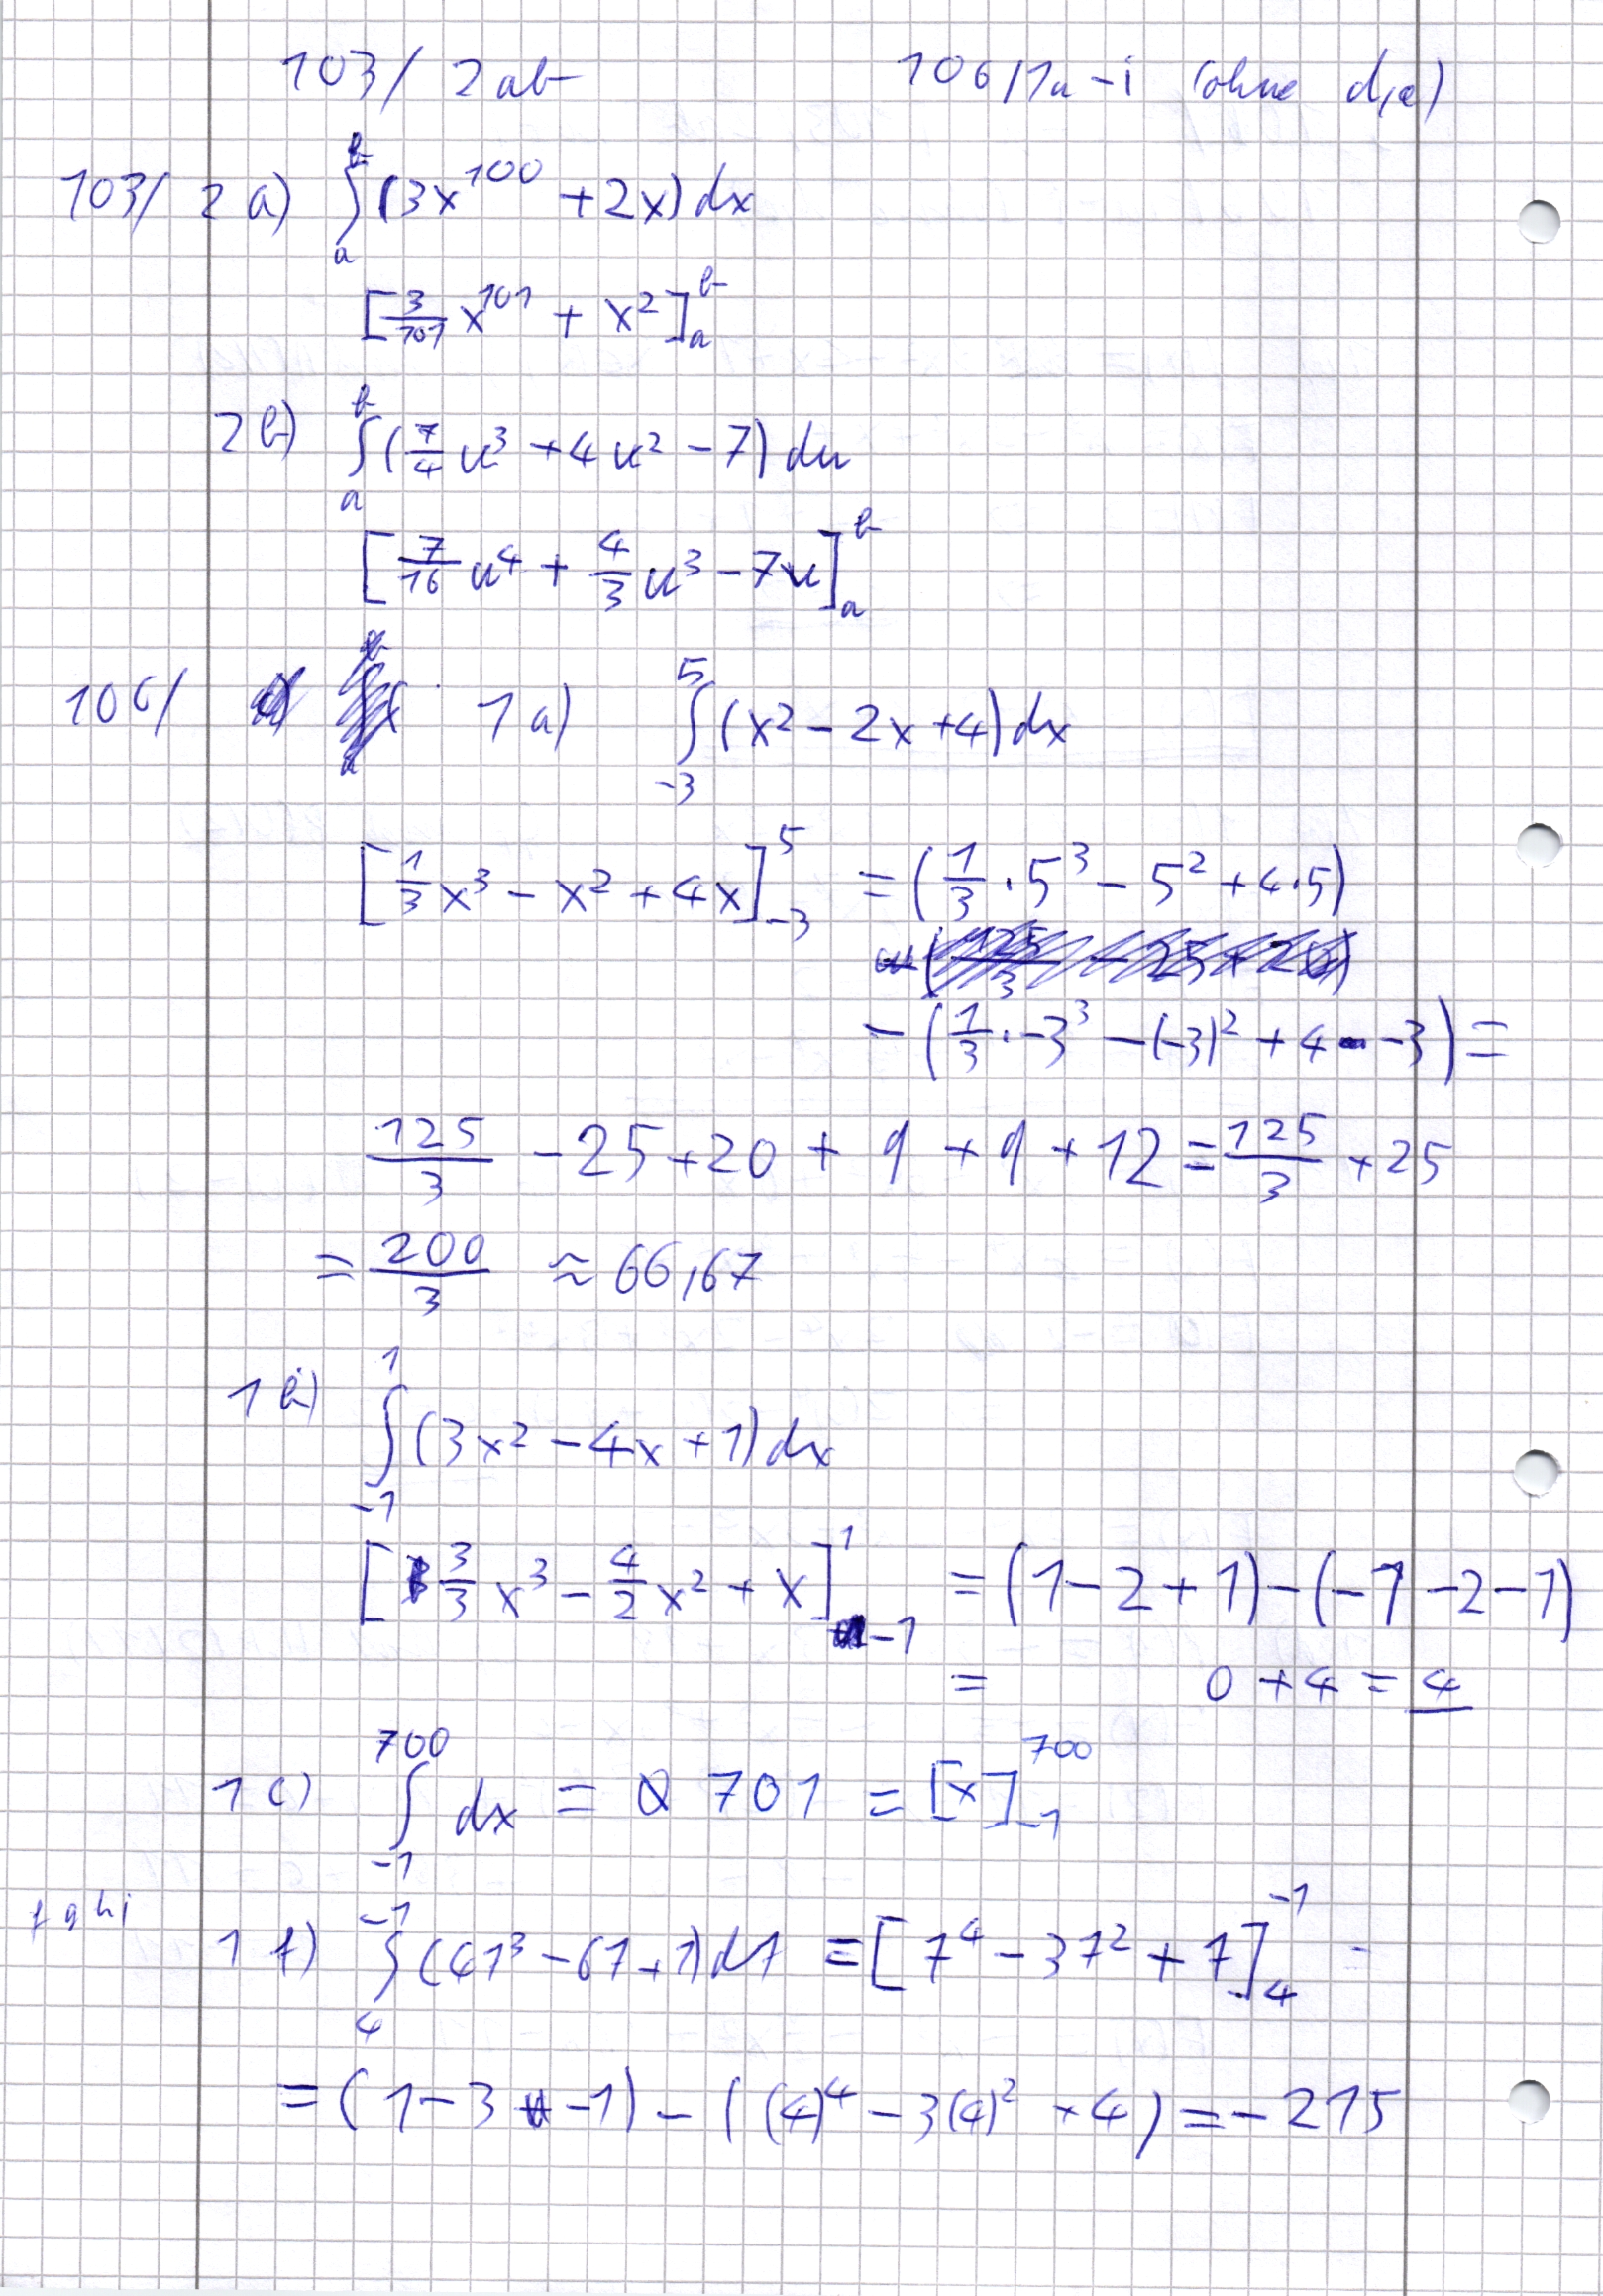 103/ 2ab 106/1a-i (ohne d,e)
103/ 2 a) ∫_a^b (3x^100 + 2x) dx
[3/101 x^101 + x^2]_a^b
2b) ∫_a^b (7/4 u^3 + 4u^2 - 7) du
[7/16 u^4 + 4/3 u^3 - 7u]_a^b
106/ 1a) ∫_-3^5 (x^2 - 2x + 4) dx
[1/3 x^3 - x^2 + 4x]_-3^5 = (1/3 · 5^3 - 5^2 + 4·5)
- (1/3 · -3^3 - (-3)^2 + 4 · -3) =
125/3 - 25 + 20 + 9 + 9 + 12 = 125/3 + 25
= 200/3 ≈ 66,67
1b) ∫_-1^1 (3x^2 - 4x + 1) dx
[3/3 x^3 - 4/2 x^2 + x]_-1^1 = (1-2+1) - (-1-2-1)
= 0 + 4 = 4
1c) ∫_-1^700 dx = 701 = [x]_-1^700
f g h i
1 f) ∫_4^-1 (4T^3 - 6T + 1) dT = [T^4 - 3T^2 + T]_4^-1 =
= (1 - 3 - 1) - ((4)^4 - 3(4)^2 + 4) = -215